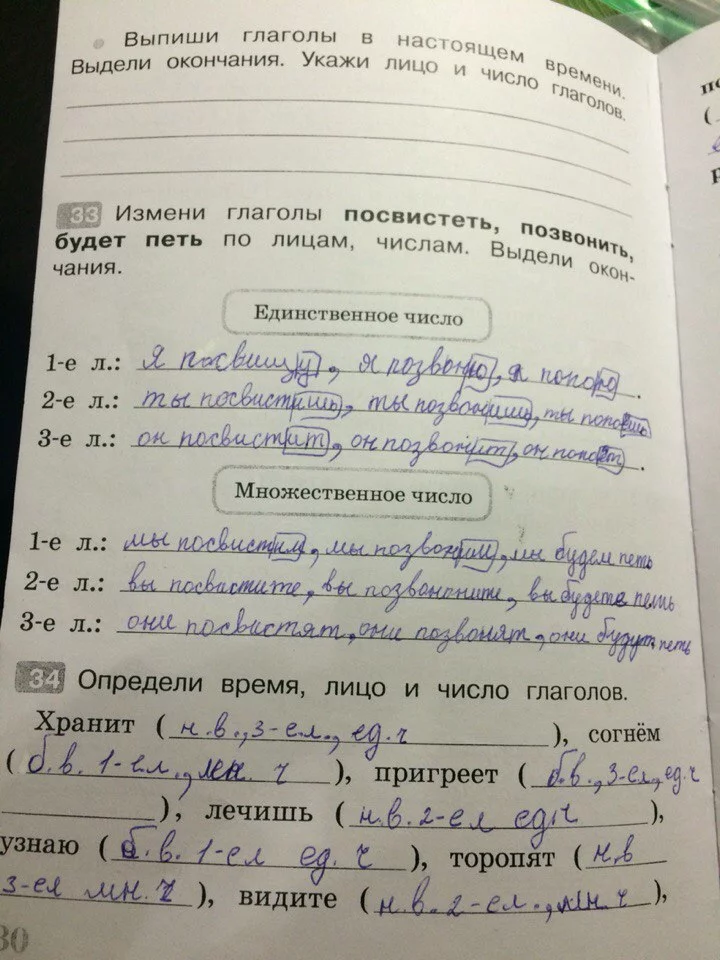 Выпиши глаголы в настоящем времени.
Выдели окончания. Укажи лицо и число глаголов.
33 Измени глаголы посвистеть, позвонить,
будет петь по лицам, числам. Выдели окон-
чания.
Единственное число
1-е л.: я посвищу, я позвоню, я попою.
2-е л.: ты посвистишь, ты позвонишь, ты попоёшь
3-е л.: он посвистит, он позвонит, он попоёт.
Множественное число
1-е л.: мы посвистим, мы позвоним, мы будем петь
2-е л.: вы посвистите, вы позвоните, вы будете петь
3-е л.: они посвистят, они позвонят, они будут петь
34 Определи время, лицо и число глаголов.
Хранит (н.в., 3-е л., ед.ч), согнём
(б.в. 1-е л., мн. ч), пригреет (б.в., 3-е л, ед.ч
), лечишь (н.в. 2-е л ед.ч),
узнаю (б.в. 1-е л ед. ч), торопят (н.в
3-е л мн. ч), видите (н.в. 2-е л., мн. ч),
30